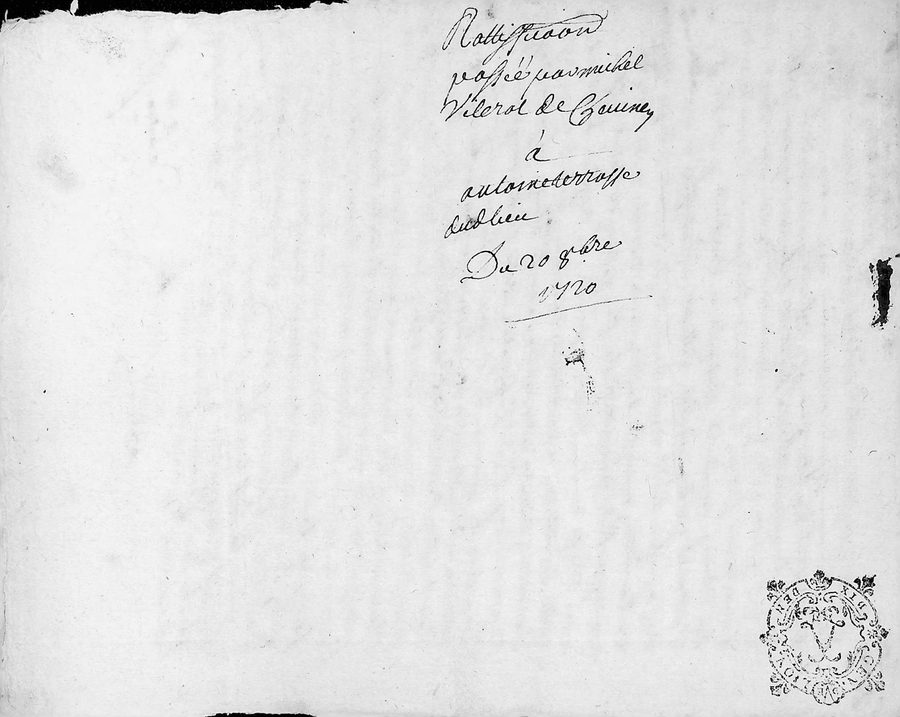 Rattiffication
passée par michel
Vilerot de Chauney
à
antoine terrasse
dudlieu
Du 20 8bre
1720
DIX DEN